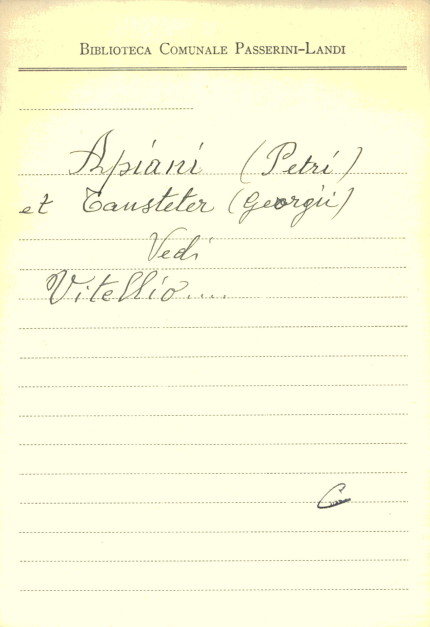 BIBLIOTECA COMUNALE PASSERINI-LANDI
Apiani (Petri)
et Tansteter (Georgii)
Vedi
Vitellio....
C